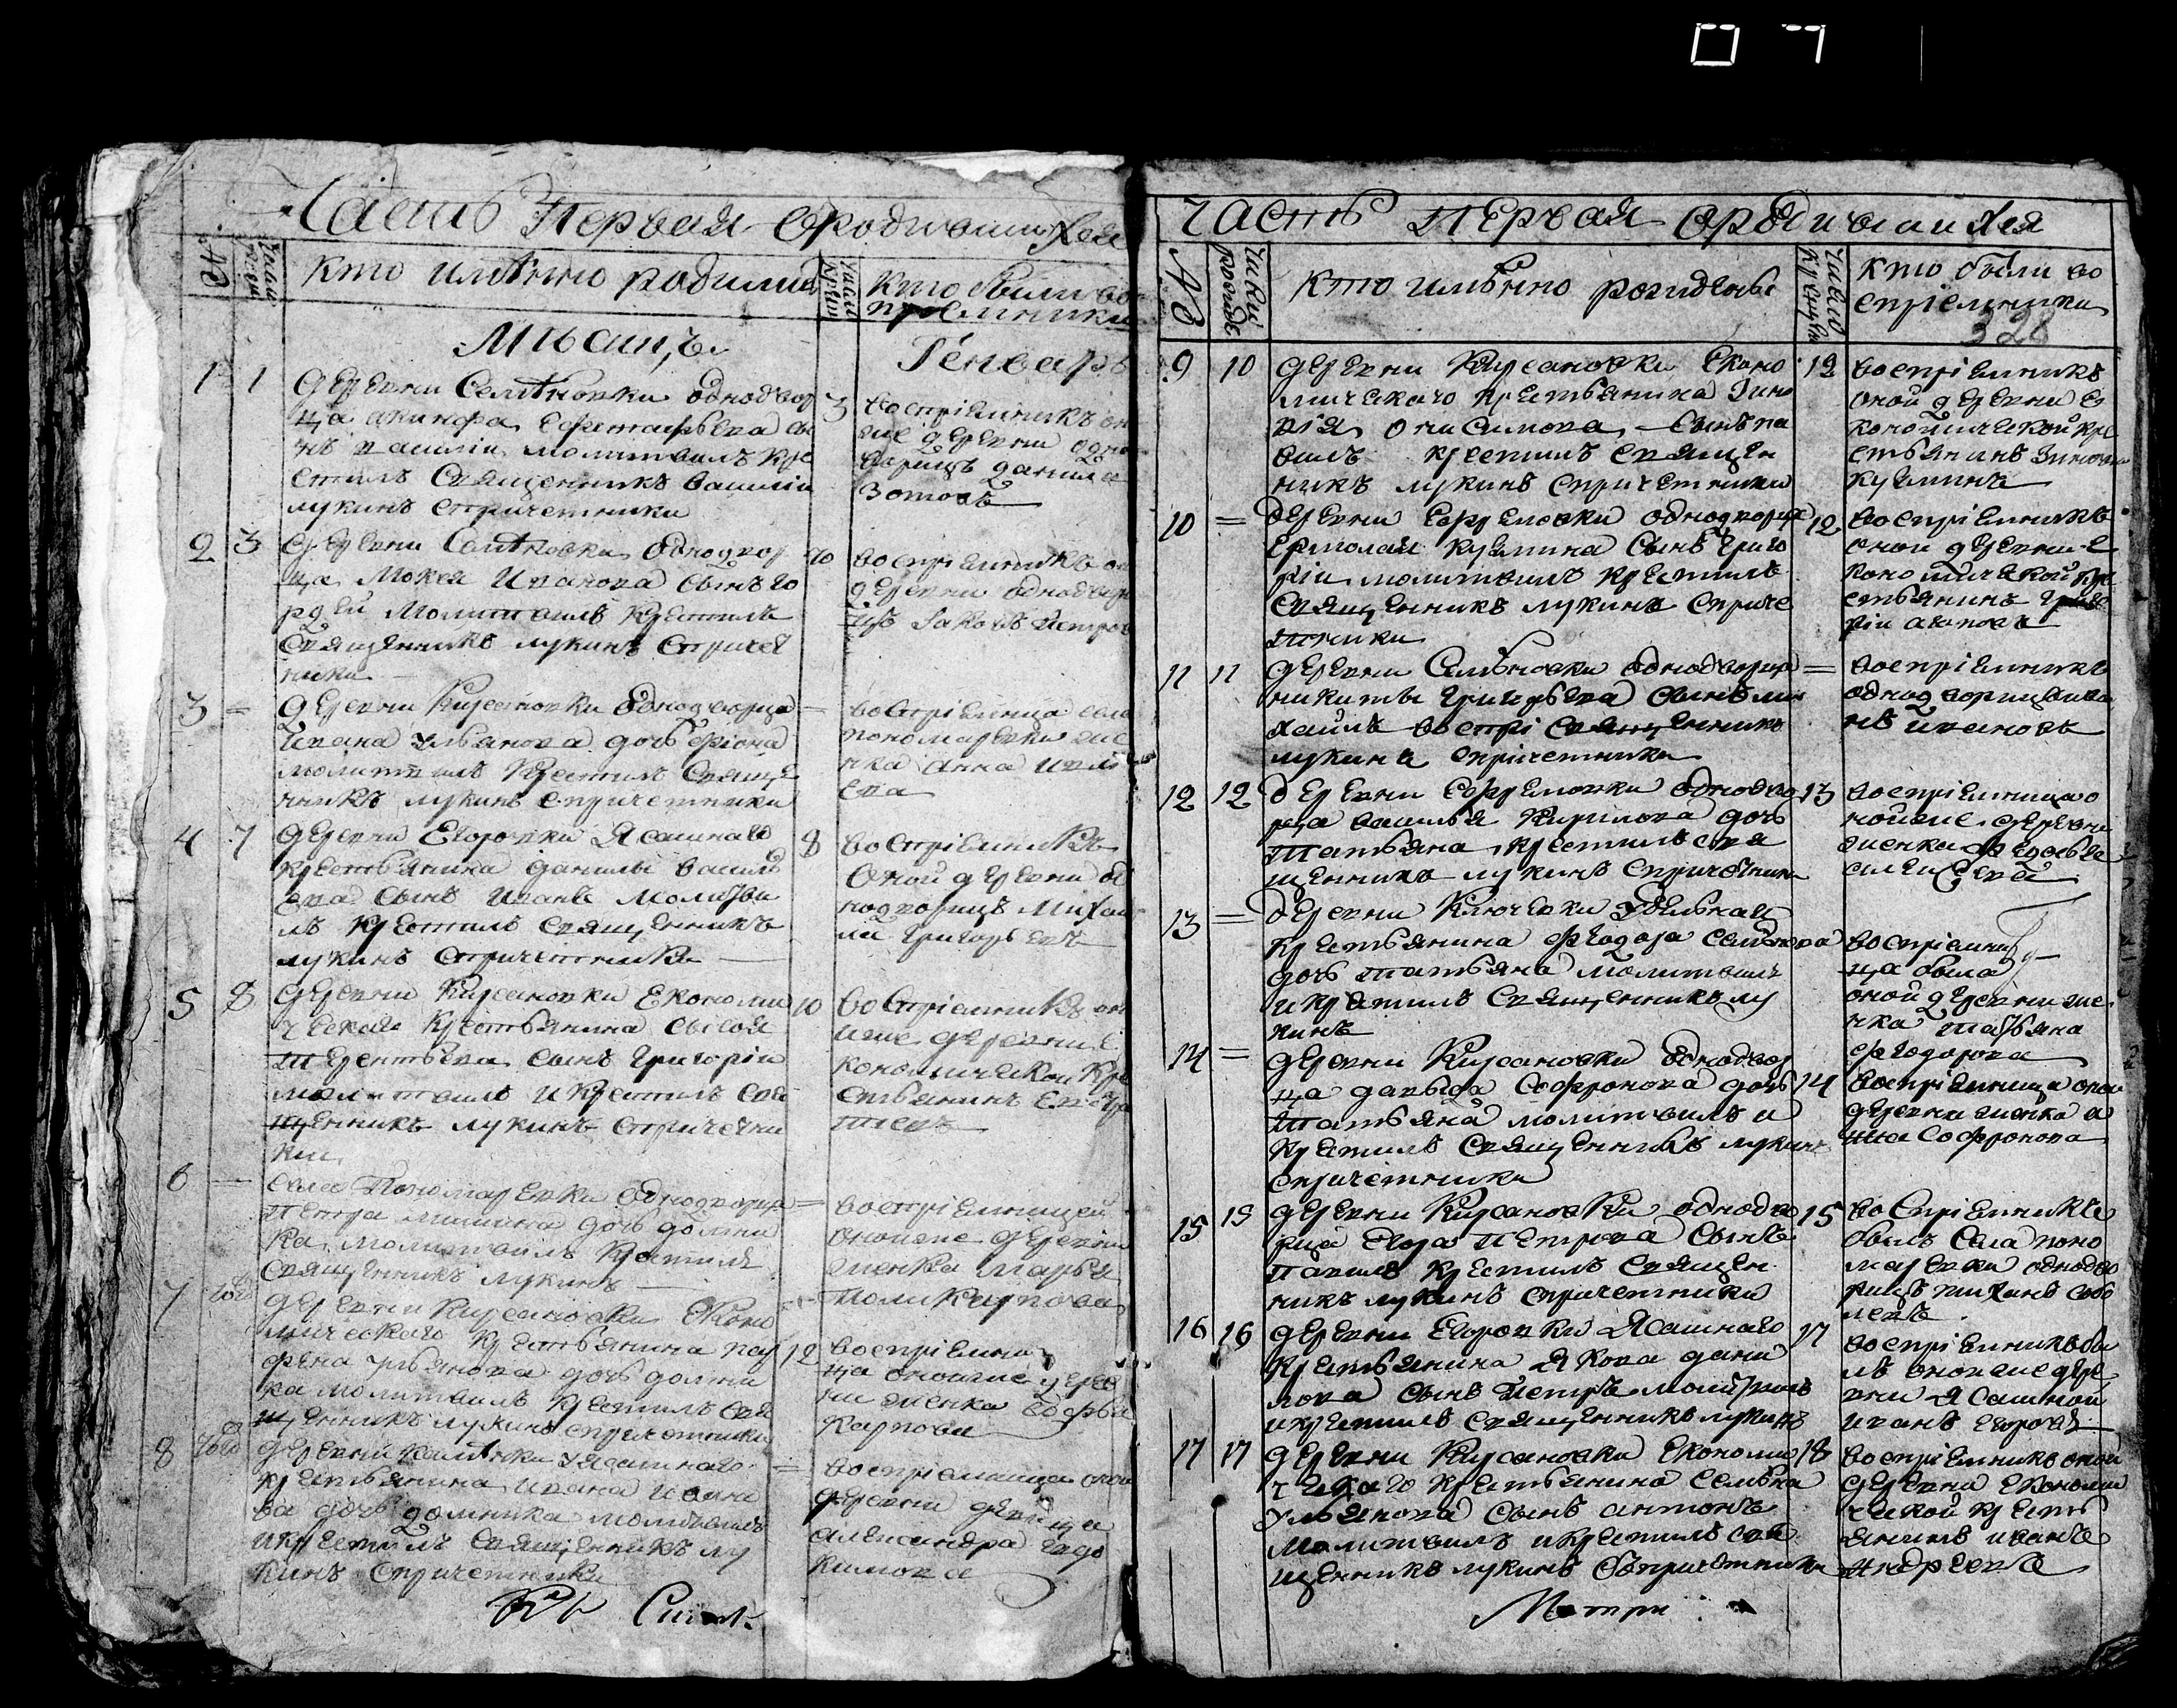 Часть Первая ородившихся
№
кто имянно родилис
кто были вос
приемники
Мѣсяцъ
Генварь
1 1
деревни Семѣновки однодвор
ца акинфа
нъ василіи молитвилъ кре
стилъ Священникъ василіи
лукинъ спричетники
3
воспріемникъ он
же деревни одно
дворецъ данила
Зотовъ
2 3
деревни Семѣновки однодвор
ца Мокея Иванова сынъ го
рдѣй молитвилъ крестилъ
Священникъ лукинъ спричет
ники
10
воспріемникъ он
деревни однодвор
цъ Іаковъ петров
3 =
деревни Кирсановки однодворца
Ивана ульянова дочь
молитвилъ крестилъ Свяще
нникъ лукинъ спричетники
=
воспріемница села
пономаревки же
нка Анна
ева
4 7
деревни Егоровки Ясашнаго
крестьянина данилы василь
ева сынъ Иванъ молитви
лъ крестилъ священникъ
лукинъ спричетники
8
воспріемникъ
оной деревни од
нодворецъ Миха
ила григорьевъ
5 8
деревни Кирсановки Економи
ческая крестьянина сысоя
терентьева сынъ григоріи
молитвилъ и крестилъ свя
щенникъ лукинъ спричетни
ки
10
воспріемникъ он
иже деревни е
кономической кре
стьянинъ
6 =
села Пономаревки однодворца
петра дочь домни
ка молитвилъ крестилъ
священникъ лукинъ
=
воспріемницей
оноиже деревни
женка марья
поликарпова
7
деревни Кирсановки Еконо
мическаго крестьянина пар
фена ульянова дочь домни
ка молитвилъ крестилъ свя
щенникъ лукинъ спричетники
12
воспріемни
ца оноиже дерев
ни женка
карпова
8
деревни ясашнаго
крестьянина ивана ивано
ва дочь домника молитвилъ
и крестилъ священникъ лу
кинъ спричетники
=
воспріемница оной
деревни девица
александра евдо
кимова
Часть Первая ородившихся
№
кто имянно рожденъ
кто были во
спріемники
328
9 10
деревни Кирсановки Еконо
мическаго крестьянина Зино
вія онисимова сынъ па
велъ крестилъ священ
никъ лукинъ спричетники
12
воспріемникъ
оной деревни е
кономической кре
стьянинъ
кузминъ
10 =
деревни Ефремовки однодворца
ермолая кузмина сынъ григо
ріи молитвилъ крестилъ
Священникъ лукинъ сприче
тники
12
воспріемникъ
оной деревни е
кономической кре
стьянинъ григо
ріи
11 11
деревни Семѣновки однодворца
никиты григорьева сынъ ми
хайлъ воспрі священникъ
лукинъ спричетники
=
воспріемникъ
однодворецъ ива
нъ ивановъ
12 12
деревни Ефремовки однодво
рца василья кирилова дочь
татьяна крестилъ свя
щенникъ лукинъ спричетники
13
воспріемница о
нойже деревни
женка федосья
алексѣева
13 =
деревни Ключевки удельнаго
крестьянина федора семѣнова
дочь татьяна молитвилъ
и крестилъ Священникъ лу
кинъ
воспріемни
ца была
оной деревни же
нка татьяна
федорова
14 =
деревни Кирсановки однодвор
ца давыда Софронова дочь
татьяна молитвилъ и
крестилъ Священникъ лукинъ
спричетники
14
воспріемница оной
деревни женка а
нна Софронова
15 15
деревни Кирсановки однодво
рца егора петрова сынъ
павилъ крестилъ священ
никъ лукинъ спричетники
15
воспріемникъ
былъ села поно
маревки однодво
рецъ тихонъ собо
левъ
16 16
деревни Егоровки Ясашнаго
крестьянина якова дани
лова сынъ петръ молитвилъ
и крестилъ священникъ лукинъ
17
воспріемникъ бы
лъ оноиже дере
вни ясашной
иванъ егоровъ
17 17
деревни Кирсановки економи
ческаго крестьянина семѣна
ульянова сынъ антонъ
молитвилъ и крестилъ свя
щенникъ лукинъ съпричетники
18
воспріемникъ оной
деревни економи
ческой кресть
янинъ иванъ
андреевъ